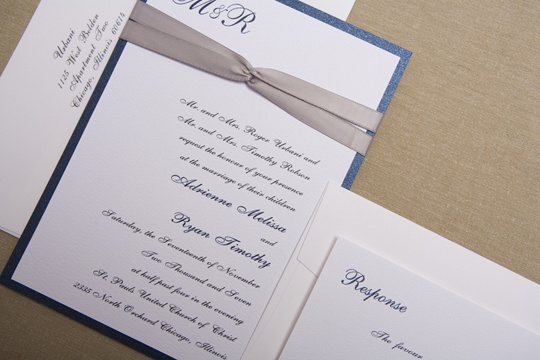 Urbani
1125 West Belden
Apartment Two
Chicago, Illinois 60614
M&R
Mr. and Mrs. Roger Urbani and
Mr. and Mrs. Timothy Robson
request the honour of your presence
at the marriage of their children
Adrienne Melissa
and
Ryan Timothy
Saturday, the Seventeenth of November
Two Thousand and Seven
at half past four in the evening
St. Pauls United Church of Christ
2335 North Orchard Chicago, Illinois
Response
The favour